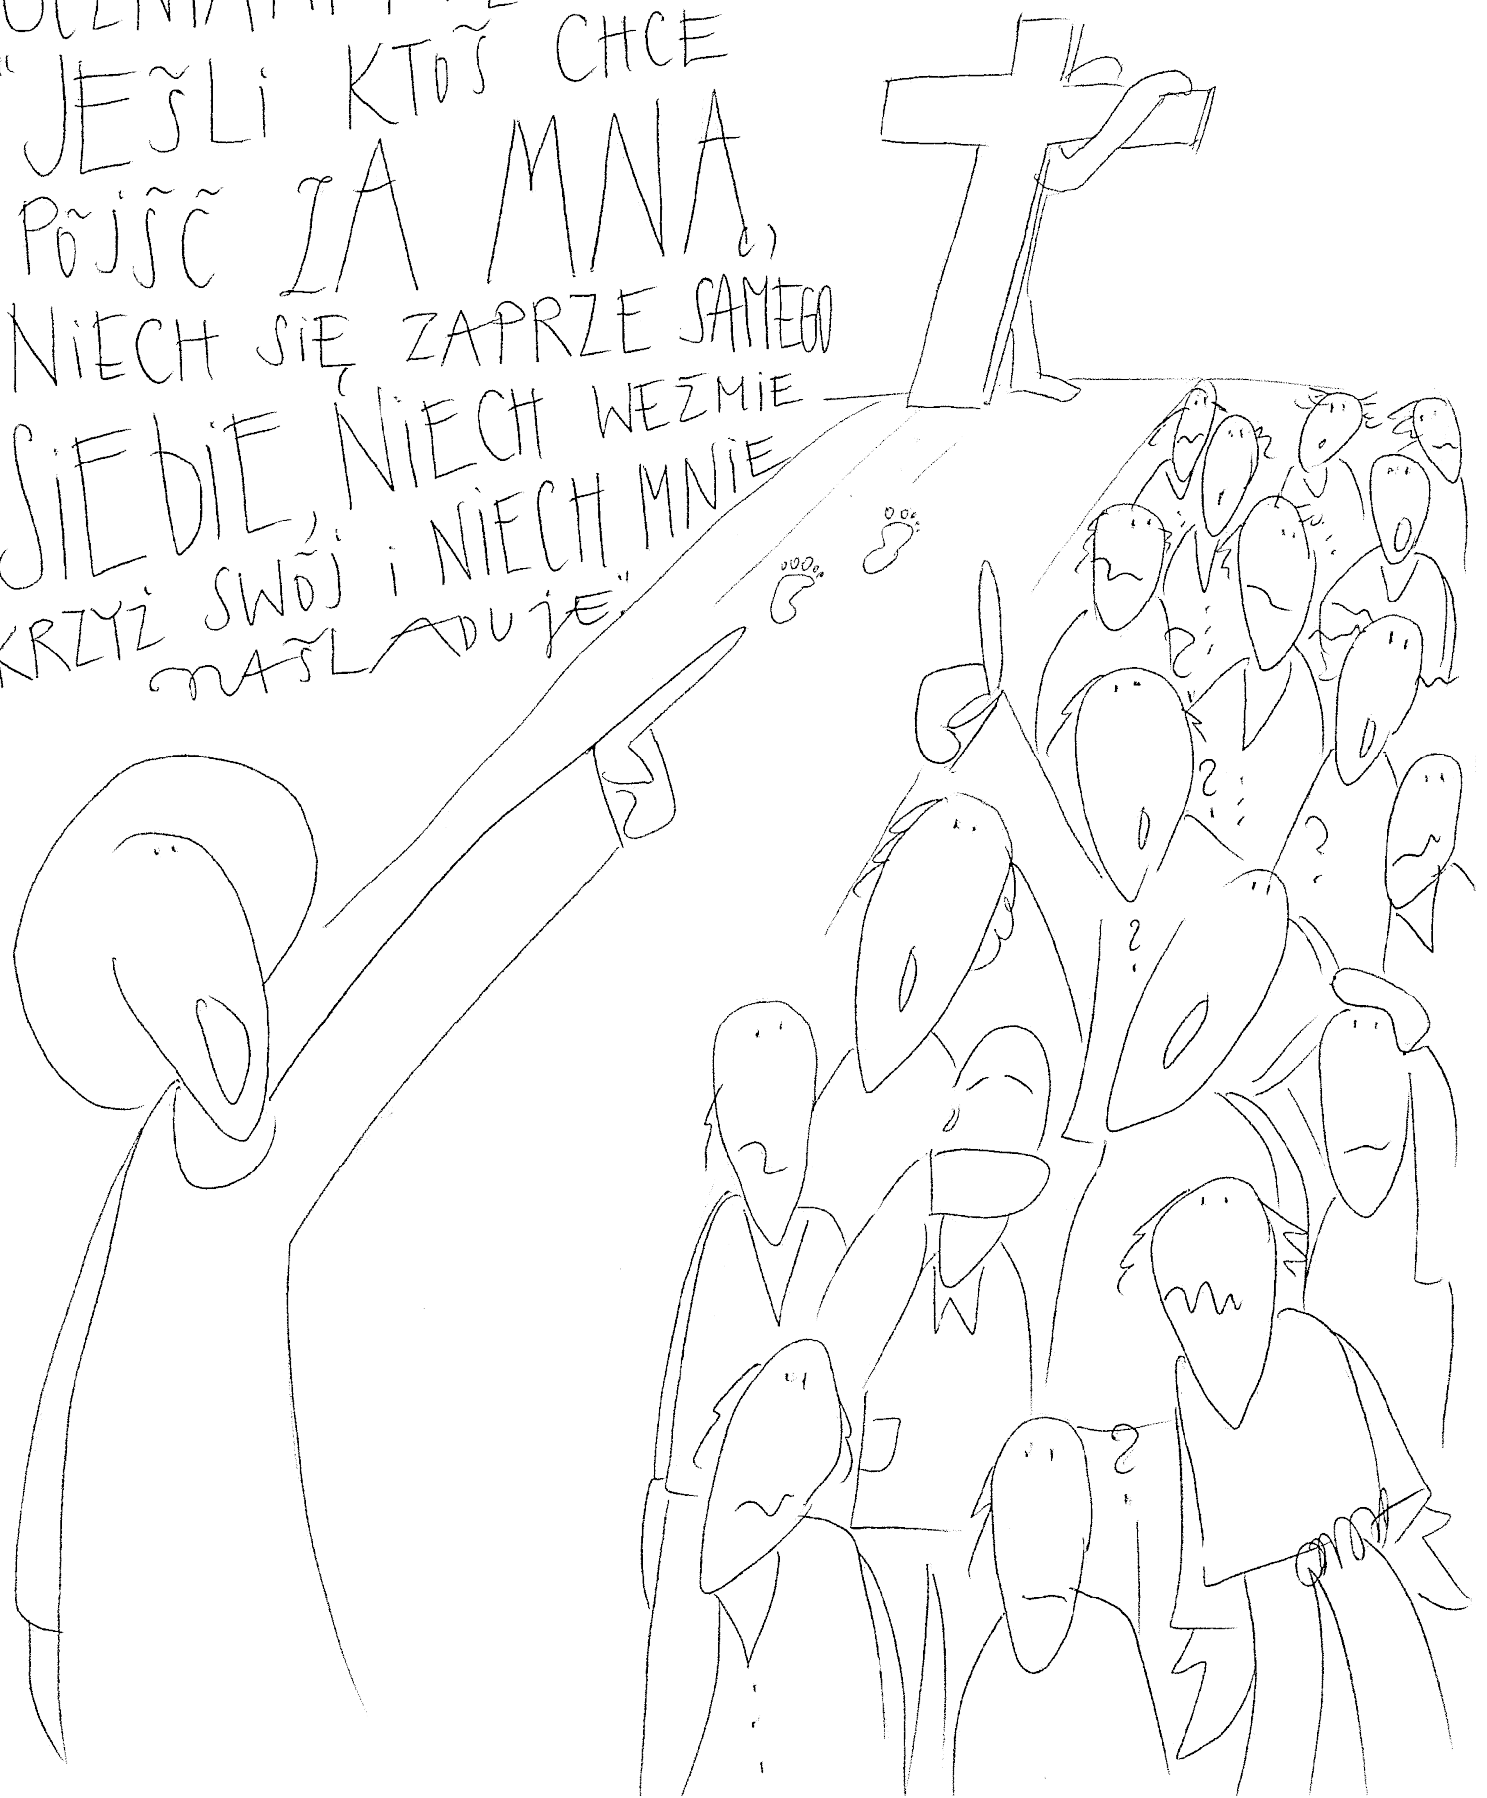 "JEŚLI KTOŚ CHCE
PÓJŚĆ ZA MNĄ,
NIECH SIĘ ZAPRZE SAMEGO
SIEBIE, NIECH WEŹMIE
KRZYŻ SWÓJ i NIECH MNIE
NAŚLADUJE."
?
?
?
?
?